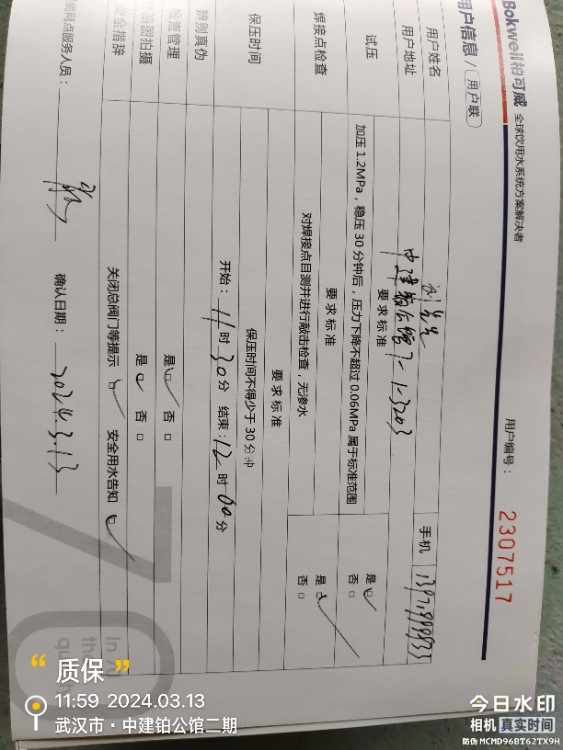 Bokwell柏可威 全球饮用水系统方案解决者
用户编号： 2307517
用户信息 / 用户联
用户姓名 刘先生 手机
用户地址 中建铂公馆7-1-3203
试压 要求标准
加压 1.2MPa，稳压 30 分钟后，压力下降不超过 0.06MPa 属于标准范围 是☑ 否□
焊接点检查 要求标准
对焊接点目测并进行敲击检查，无渗水 是☑ 否□
保压时间 要求标准
保压时间不得少于 30 分钟
开始：11时30分 结束：12时00分
辨别真伪 是☑ 否□
检查管理 是☑ 否□
图拍摄
安全措辞 关闭总阀门等提示☑ 安全用水告知☑
网点服务人员： 确认日期：2024.3.13
70
In
tha
qu
“ 质保 ”
11:59 2024.03.13
武汉市·中建铂公馆二期
今日水印
相机 真实时间
防伪 MCMD96BT62TX9H